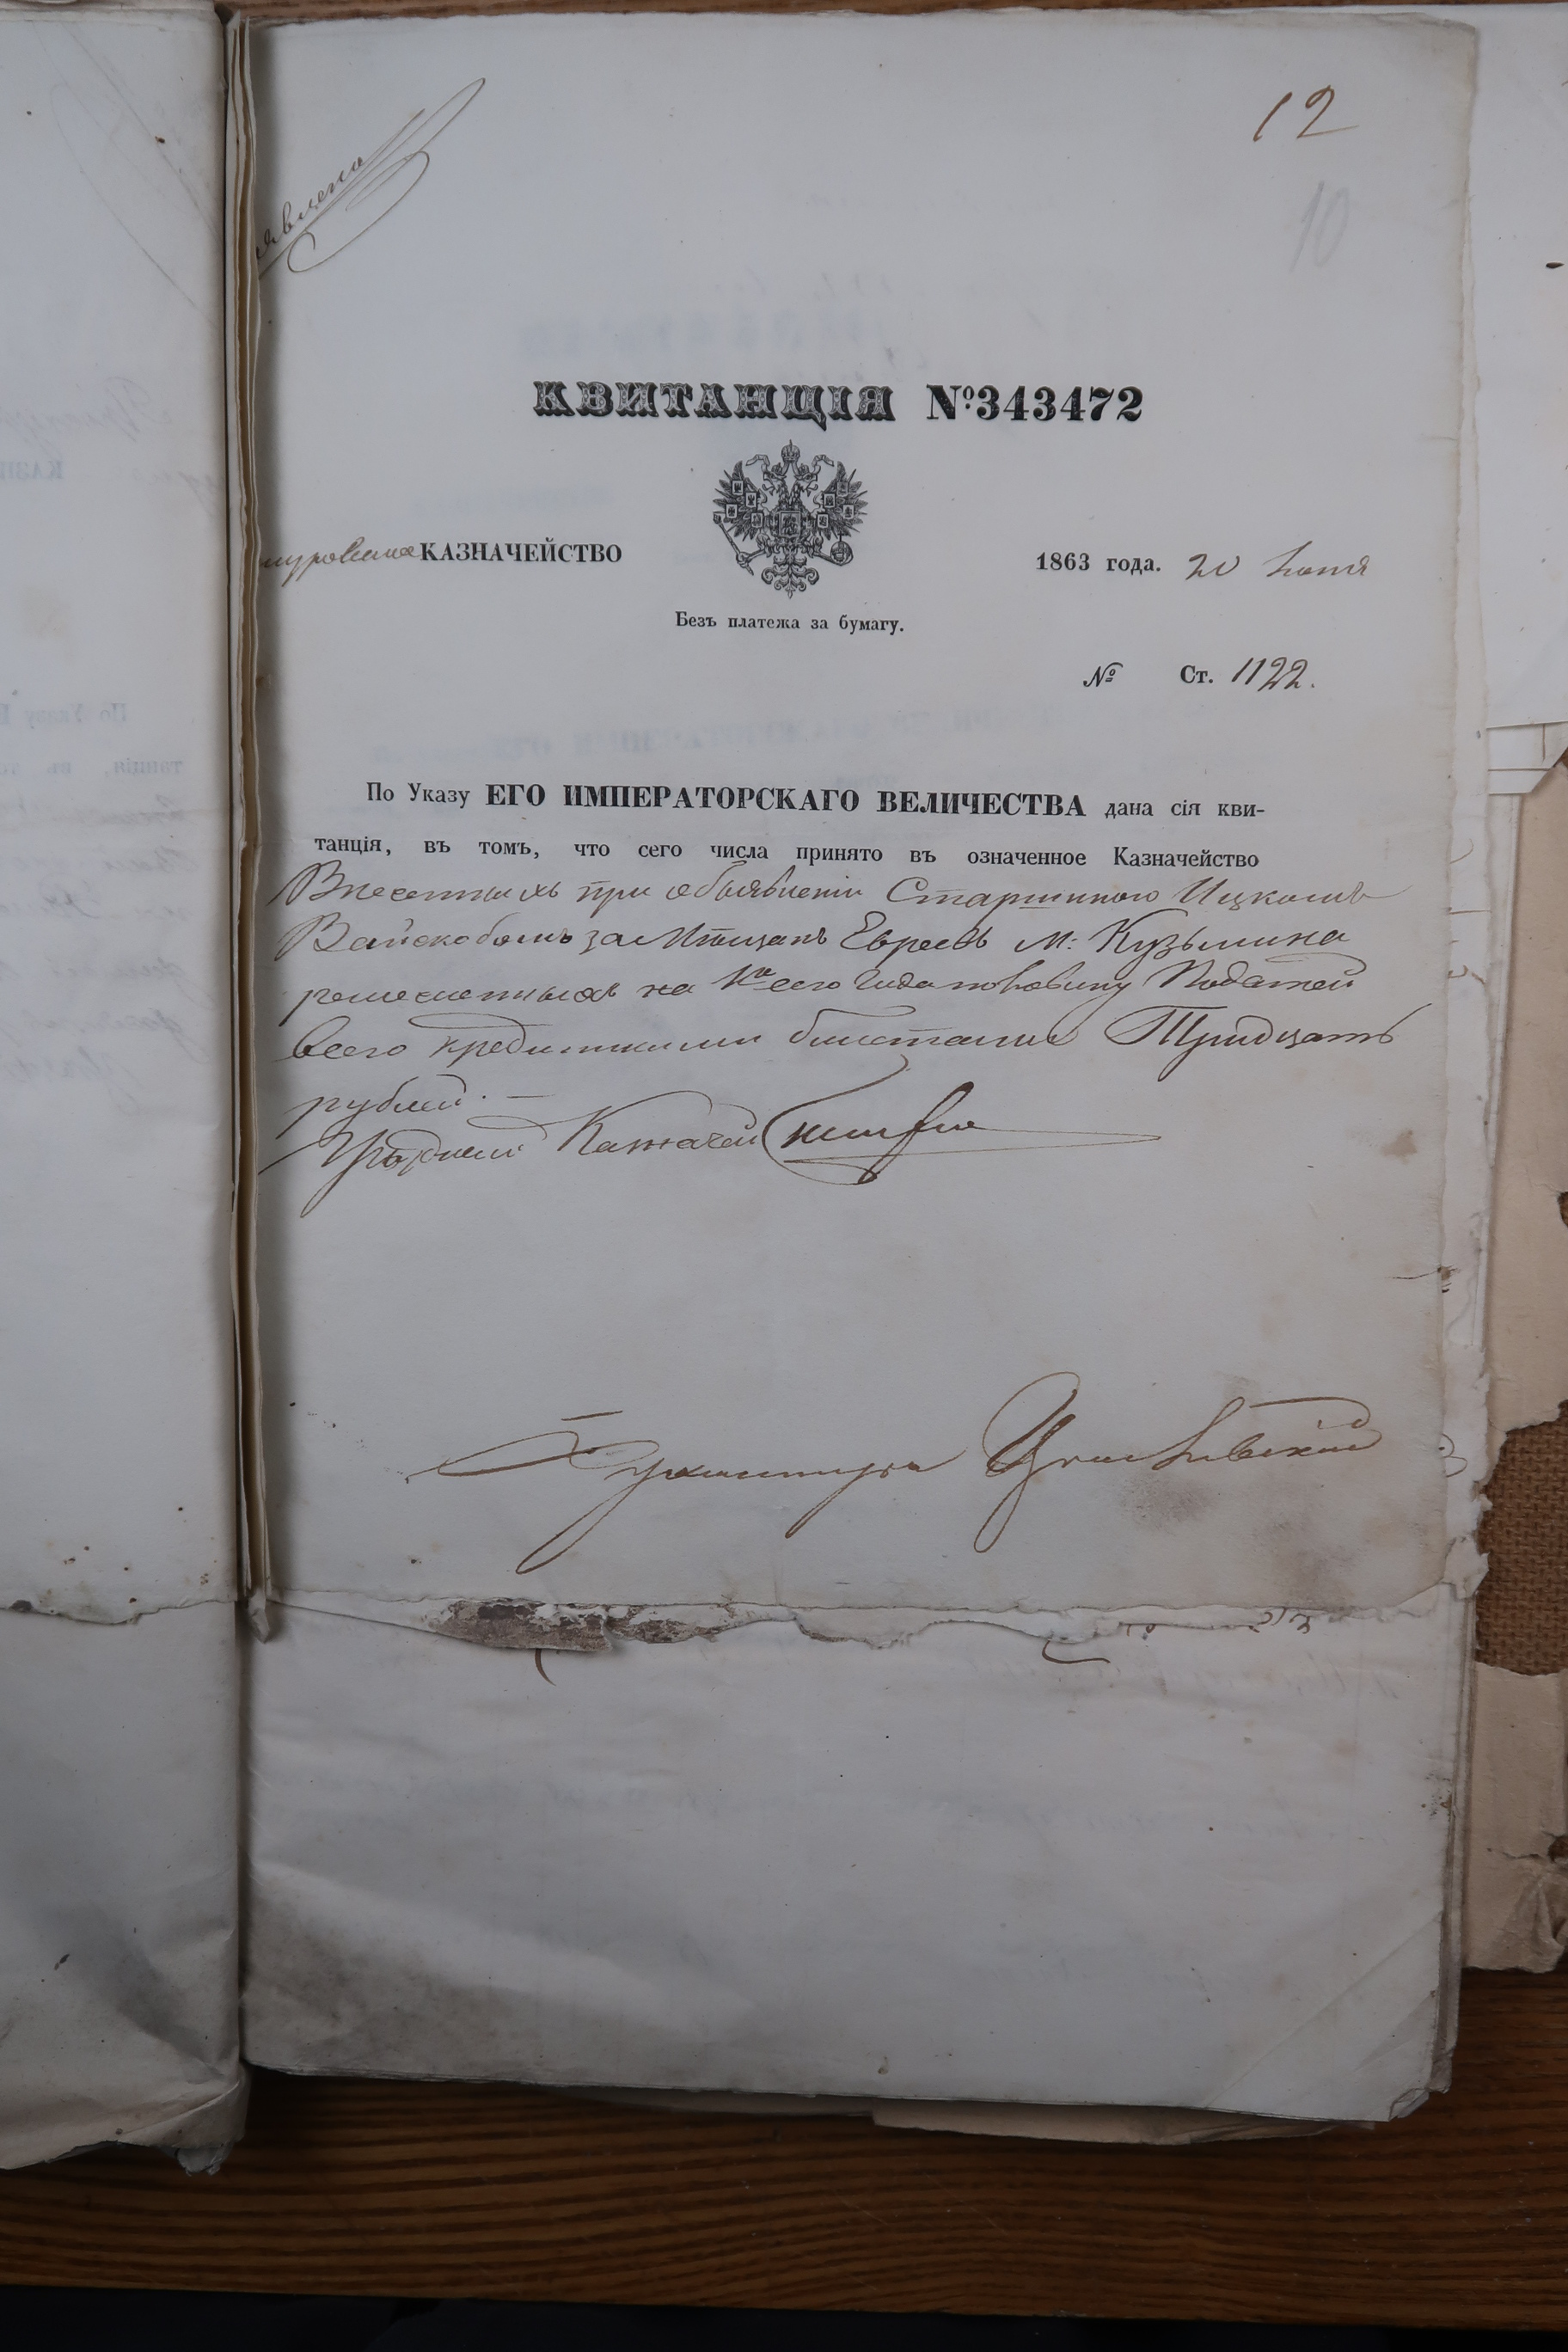 явлена
12
10
КВИТАНЦІЯ №343472
КАЗНАЧЕЙСТВО
1863 года. 20 Іюня
Безъ платежа за бумагу.
№ Ст. 1122.
По Указу ЕГО ИМПЕРАТОРСКАГО ВЕЛИЧЕСТВА дана сія кви-
танція, въ томъ, что сего числа принято въ означенное Казначейство
Внесенныхъ при объявленіи Старшиною Ицкомъ
Вайскобомъ за Мѣщанъ Евреевъ М: Кузьмина
на 1ю сего года половину Податей
всего кредитными билетами Тридцать
рублей. —
Уѣздный Казначей